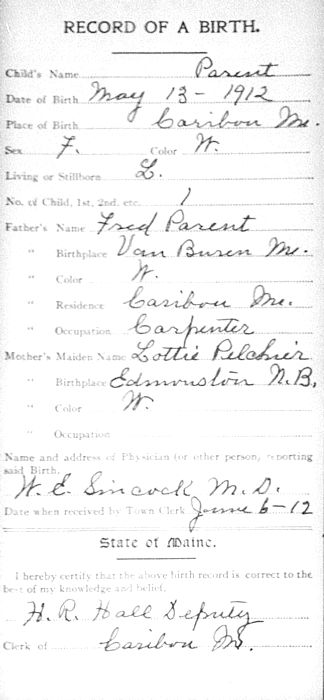 RECORD OF A BIRTH.
Child's Name Parent
Date of Birth May 13 - 1912
Place of Birth Caribou Me.
Sex F. Color W.
Living or Stillborn L.
No. of Child, 1st, 2nd, etc. 1
Father's Name Fred Parent
" Birthplace Van Buren Me.
" Color W.
" Residence Caribou Me.
" Occupation Carpenter
Mother's Maiden Name Lottie Pelchier
" Birthplace Edmonston N.B.
" Color W.
" Occupation
Name and address of Physician (or other person, reporting
said Birth,
W. E. Sincock M.D.
Date when received by Town Clerk June 6-12
State of Maine.
I hereby certify that the above birth record is correct to the
best of my knowledge and belief.
H. R. Hall Deputy
Clerk of Caribou Me.